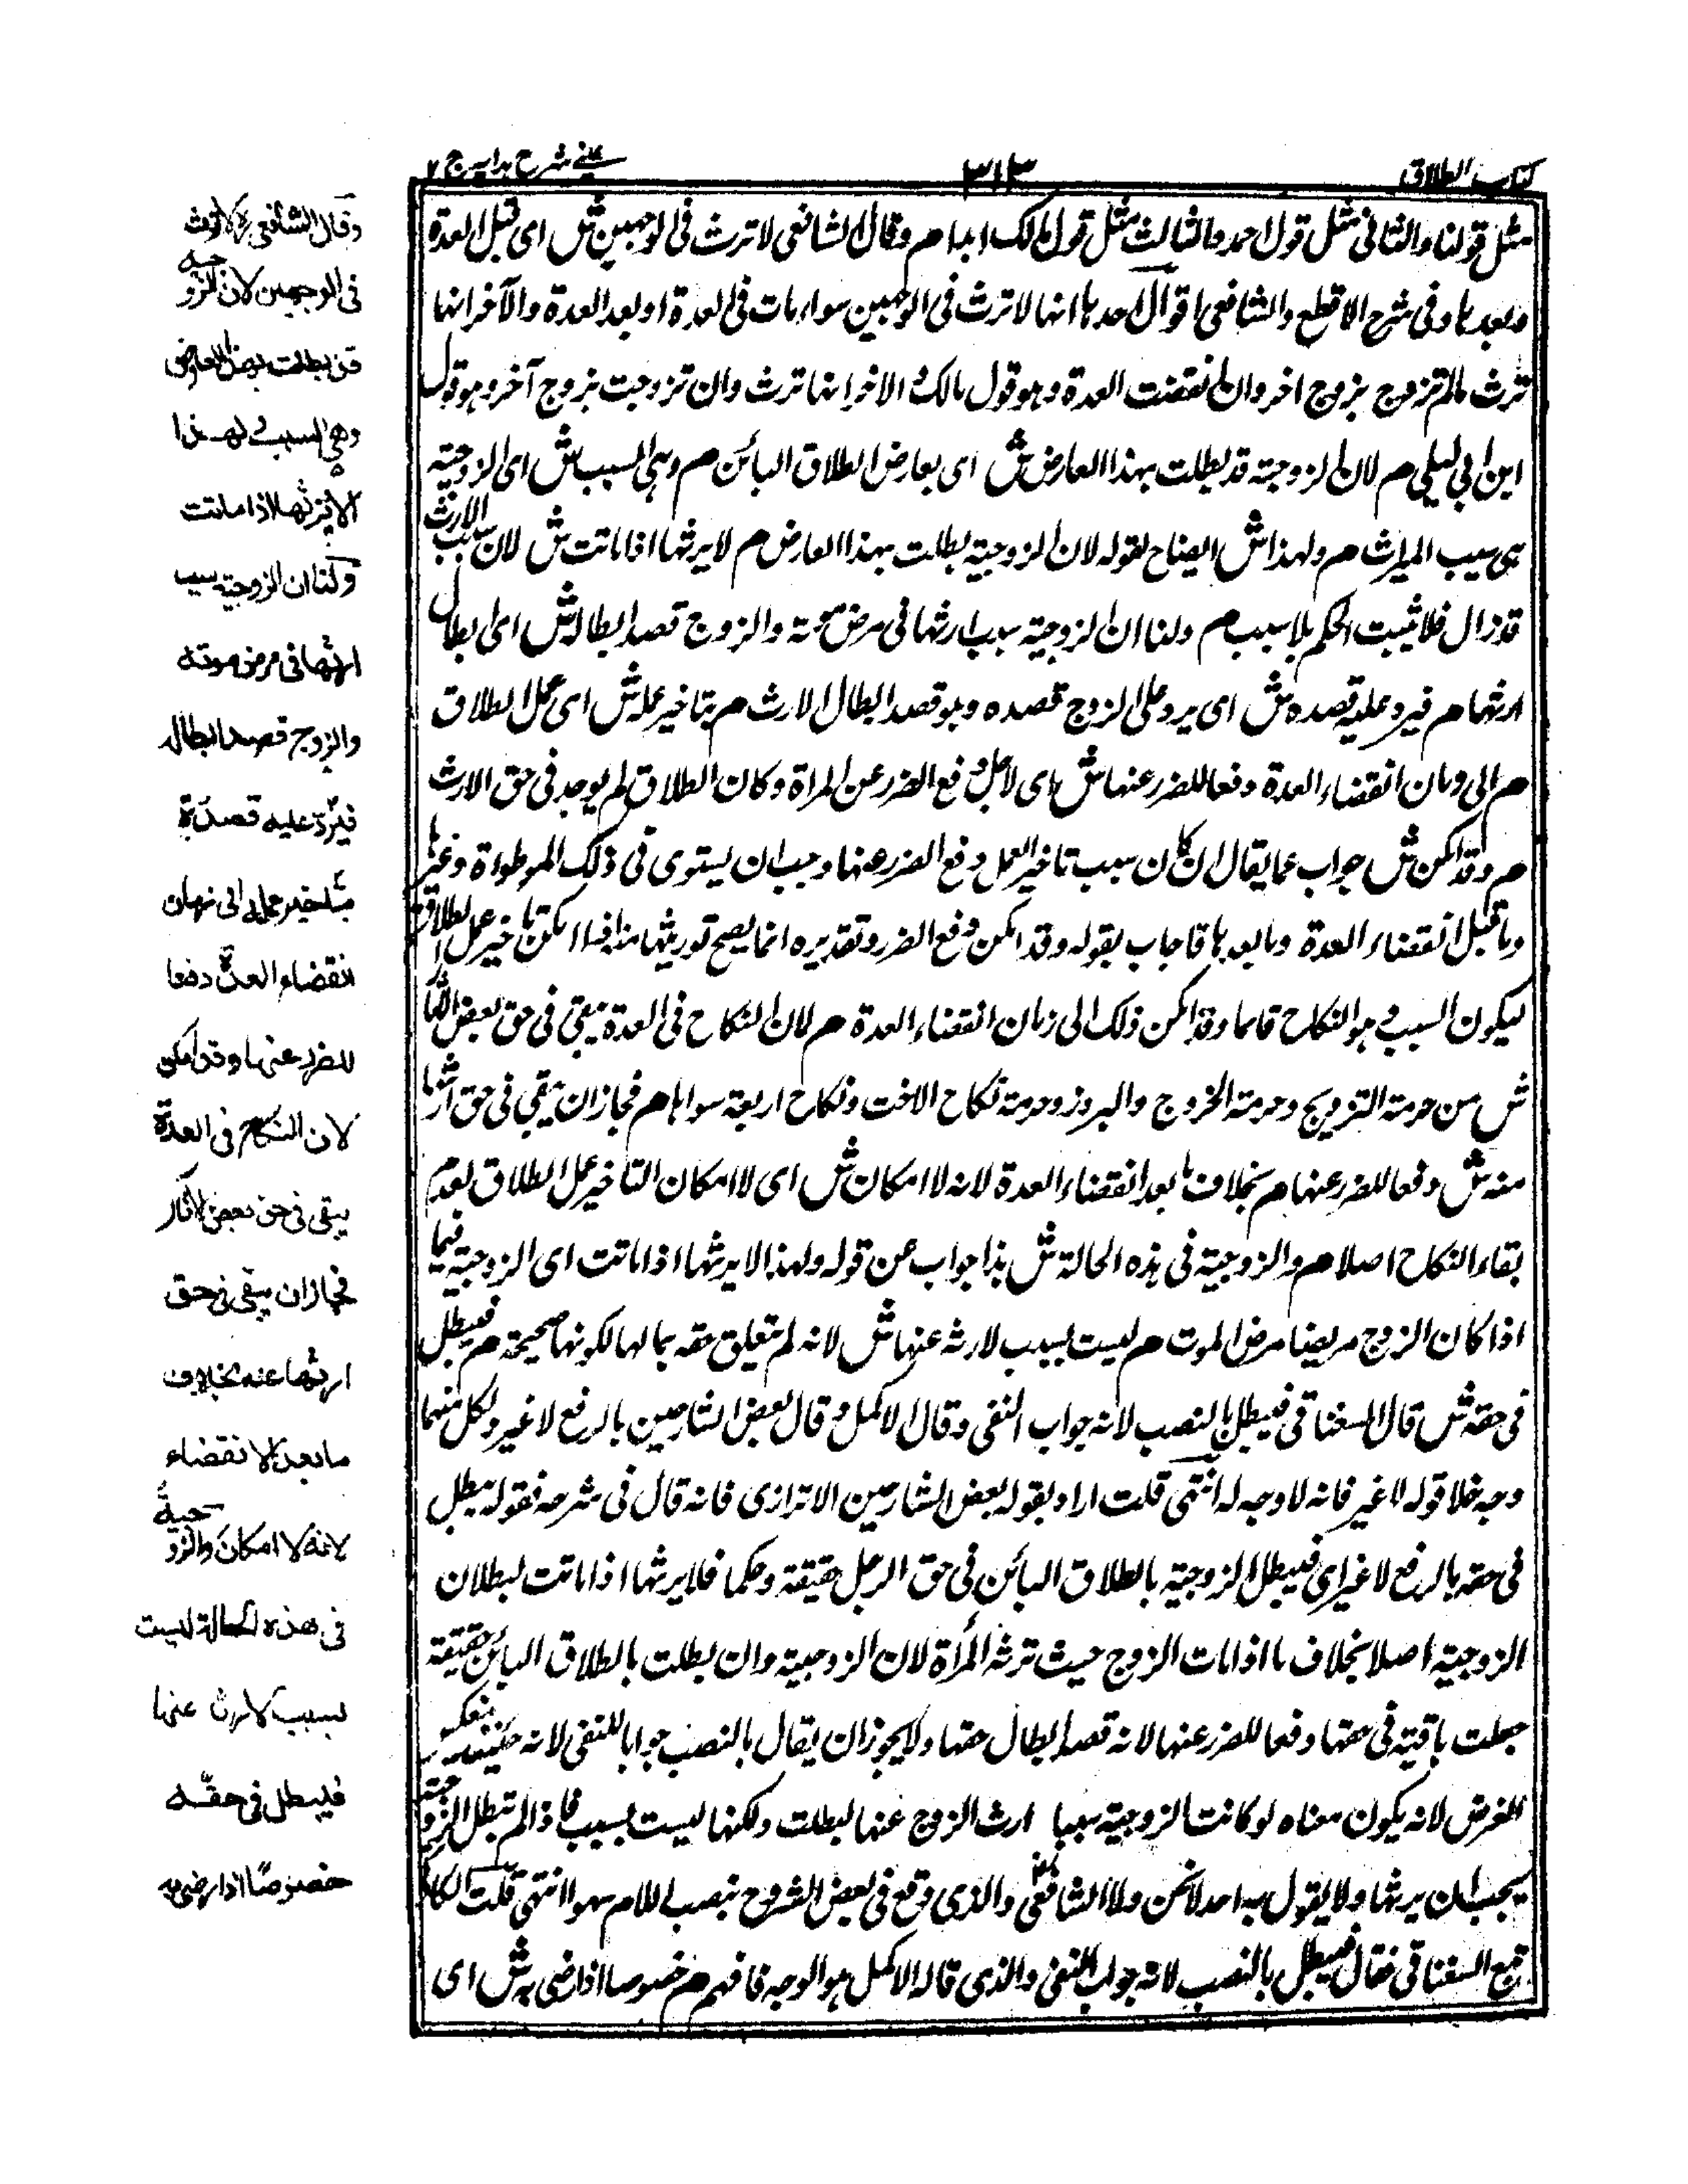 كتاب الطلاق
٣١٣
عينى شرح هدايه ج ٢
مثل قولنا والثانى مثل قول احمد والثالث مثل قول مالك ابدا م وقال الشافعى لا ترث فى الوجهين ش اى قبل العدة
وبعدها وفى شرح الاقطع والشافعى اقوال احدها انها لا ترث فى الوجهين سواء مات فى العدة او بعد العدة والآخر انها
ترث ما لم تزوج بزوج اخر وان انقضت العدة وهو قول مالك والاخر انها ترث وان تزوجت بزوج آخر وهو قول
ابن ابى ليلى م لان الزوجية قد بطلت بهذا العارض ش اى بعارض الطلاق البائن م وهى السبب ش اى الزوجية
هى سبب الميراث م ولهذا ش ايضاح لقوله لان الزوجية بطلت بهذا العارض م لا يرثها اذا ماتت ش لان سبب الارث
قد زال فلا يثبت الحكم بلا سبب م ولنا ان الزوجية سبب ارثها فى مرض موته والزوج قصد ابطاله ش اى ابطال
ارثها م فيرد عليه قصده ش اى يرد على الزوج قصده وهو قصد ابطال الارث م بتاخير عمله ش اى عمل الطلاق
م الى زمان انقضاء العدة دفعا للضرر عنها ش اى لاجل دفع الضرر عن المراة وكان الطلاق لم يوجد فى حق الارث
م وقد امكن ش جواب عما يقال ان كان سبب تاخير العمل دفع الضرر عنها وجب ان يستوى فى ذلك الموطواة وغيرها
وما قبل انقضاء العدة وما بعدها فاجاب بقوله وقد امكن دفع الضرر وتقديره انما يصح توريثها منه اذا امكن تاخير عمل الطلاق
ليكون السبب وهو النكاح قائما وقد امكن ذلك الى زمان انقضاء العدة م لان النكاح فى العدة يبقى فى حق بعض الآثار
ش من حرمة التزويج وحرمة الخروج والبروز وحرمة نكاح الاخت ونكاح اربعة سواها م فجاز ان يبقى فى حق ارثها
منه ش دفعا للضرر عنها م بخلاف ما بعد انقضاء العدة لانه لا امكان ش اى لا امكان التاخير عمل الطلاق لعدم
بقاء النكاح اصلا م والزوجية فى هذه الحالة ش هذا جواب عن قوله ولهذا لا يرثها اذا ماتت اى الزوجية فيما
اذا كان الزوج مريضا مرض الموت م ليست بسبب لارثه عنها ش لانه لم يتعلق حقه بمالها لكونها صحيحة م فيبطل
فى حقه ش قال السغناقى فيبطل بالنصب لانه جواب النفى وقال الاكمل وقال بعض الشارحين بالرفع لا غير ولكل منهما
وجه خلا قوله لا غير فانه لا وجه له انتهى قلت اراد بقوله بعض الشارحين الاترازى فانه قال فى شرحه فقوله يبطل
فى حقه بالرفع لا غير اى فيبطل الزوجية بالطلاق البائن فى حق الرجل حقيقة وحكما فلا يرثها اذا ماتت لبطلان
الزوجية اصلا بخلاف ما اذا مات الزوج حيث ترثه المرأة لان الزوجية وان بطلت بالطلاق البائن حقيقة
جعلت باقية فى حقها دفعا للضرر عنها لانه قصد ابطال حقها ولا يجوز ان يقال بالنصب جوابا للنفى لانه حينئذ ينعكس
الغرض لانه يكون معناه لو كانت الزوجية سببا ارث الزوج عنها لبطلت ولكنها ليست بسبب فاذا لم تبطل الزوجية
يجب ان يرثها ولا يقول به احد لا نحن ولا الشافعى والذى وقع فى بعض الشروح بنصب اللام سهو انتهى قلت الكاكى
تبع السغناقى فقال فيبطل بالنصب لانه جواب النفى والذى قاله الاكمل هو الوجه فافهم م خصوصا اذا رضى به ش اى
وقال الشافعى ره لا ترث
فى الوجهين لان الزوجية
قد بطلت بهذا العارض
وهى السبب ولهذا
لا يرثها اذا ماتت
ولنا ان الزوجية سبب
ارثها فى مرض موته
والزوج قصد ابطاله
فيرد عليه قصده
بتاخير عمله الى زمان
انقضاء العدة دفعا
للضرر عنها وقد امكن
لان النكاح فى العدة
يبقى فى حق بعض الآثار
فجاز ان يبقى فى حق
ارثها عنه بخلاف
ما بعد الانقضاء
لانه لا امكان والزوجية
فى هذه الحالة ليست
بسبب لارثه عنها
فيبطل فى حقه
خصوصا اذا رضى به